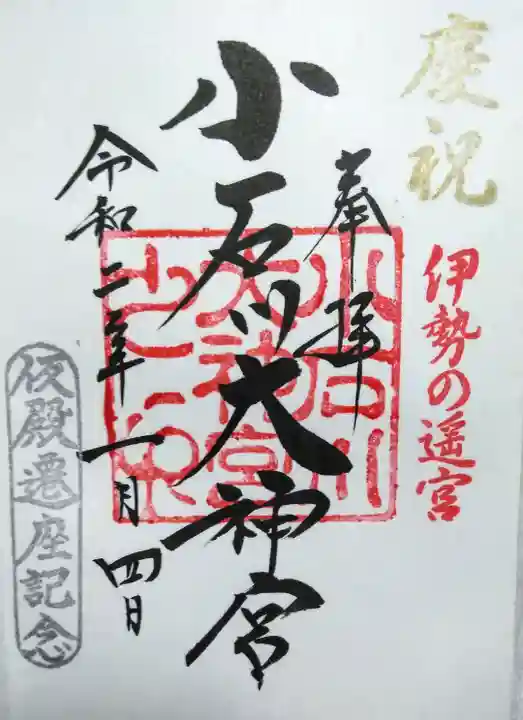 慶祝
伊勢の遥宮
奉拝
小石川大神宮
令和二年一月四日
仮殿遷座記念